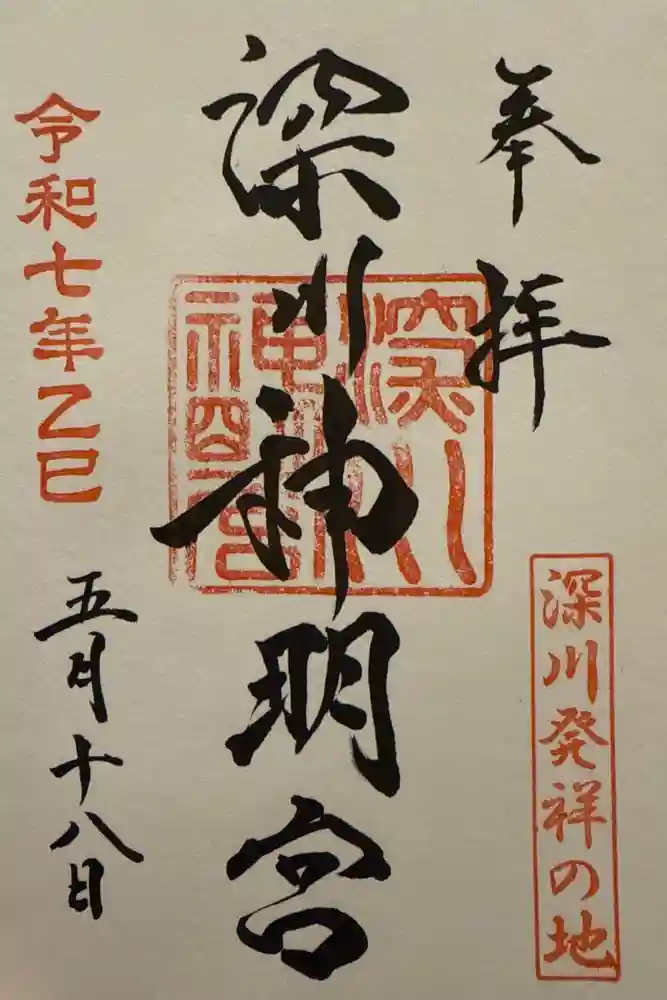 奉拝
深川発祥の地
深川神明宮
深川
神明宮
令和七年乙巳
五月十八日